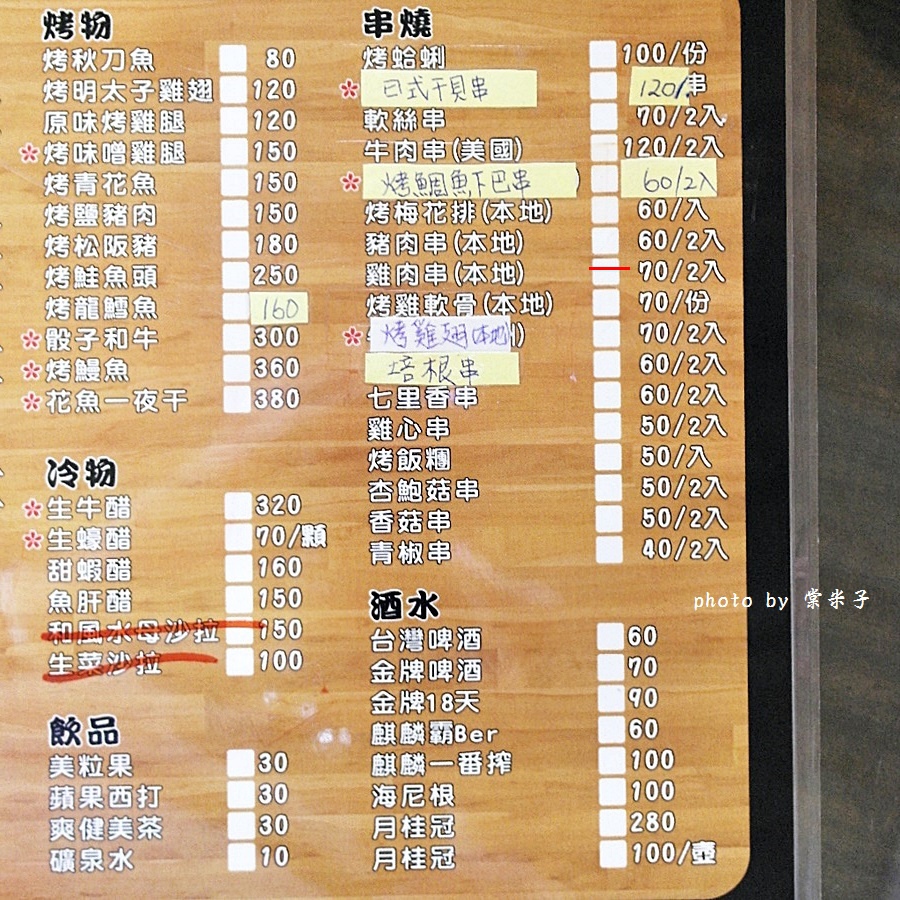 烤物
烤秋刀魚 80
烤明太子雞翅 120
原味烤雞腿 120
*烤味噌雞腿 150
烤青花魚 150
烤鹽豬肉 150
烤松阪豬 180
烤鮭魚頭 250
烤龍鱈魚 160
*骰子和牛 300
*烤鰻魚 360
*花魚一夜干 380
冷物
*生牛醋 320
*生蠔醋 70/顆
甜蝦醋 160
魚肝醋 150
和風水母沙拉 150
生菜沙拉 100
飲品
美粒果 30
蘋果西打 30
爽健美茶 30
礦泉水 10
串燒
烤蛤蜊 100/份
*日式干貝串 120/串
軟絲串 70/2入
牛肉串(美國) 120/2入
*烤鯛魚下巴串 60/2入
烤梅花排(本地) 60/入
豬肉串(本地) 60/2入
雞肉串(本地) 70/2入
烤雞軟骨(本地) 70/份
*烤雞翅(本地) 70/2入
培根串 60/2入
七里香串 60/2入
雞心串 50/2入
烤飯糰 50/入
杏鮑菇串 50/2入
香菇串 50/2入
青椒串 40/2入
酒水
台灣啤酒 60
金牌啤酒 70
金牌18天 90
麒麟霸Ber 60
麒麟一番搾 100
海尼根 100
月桂冠 280
月桂冠 100/壺
photo by 棠米子